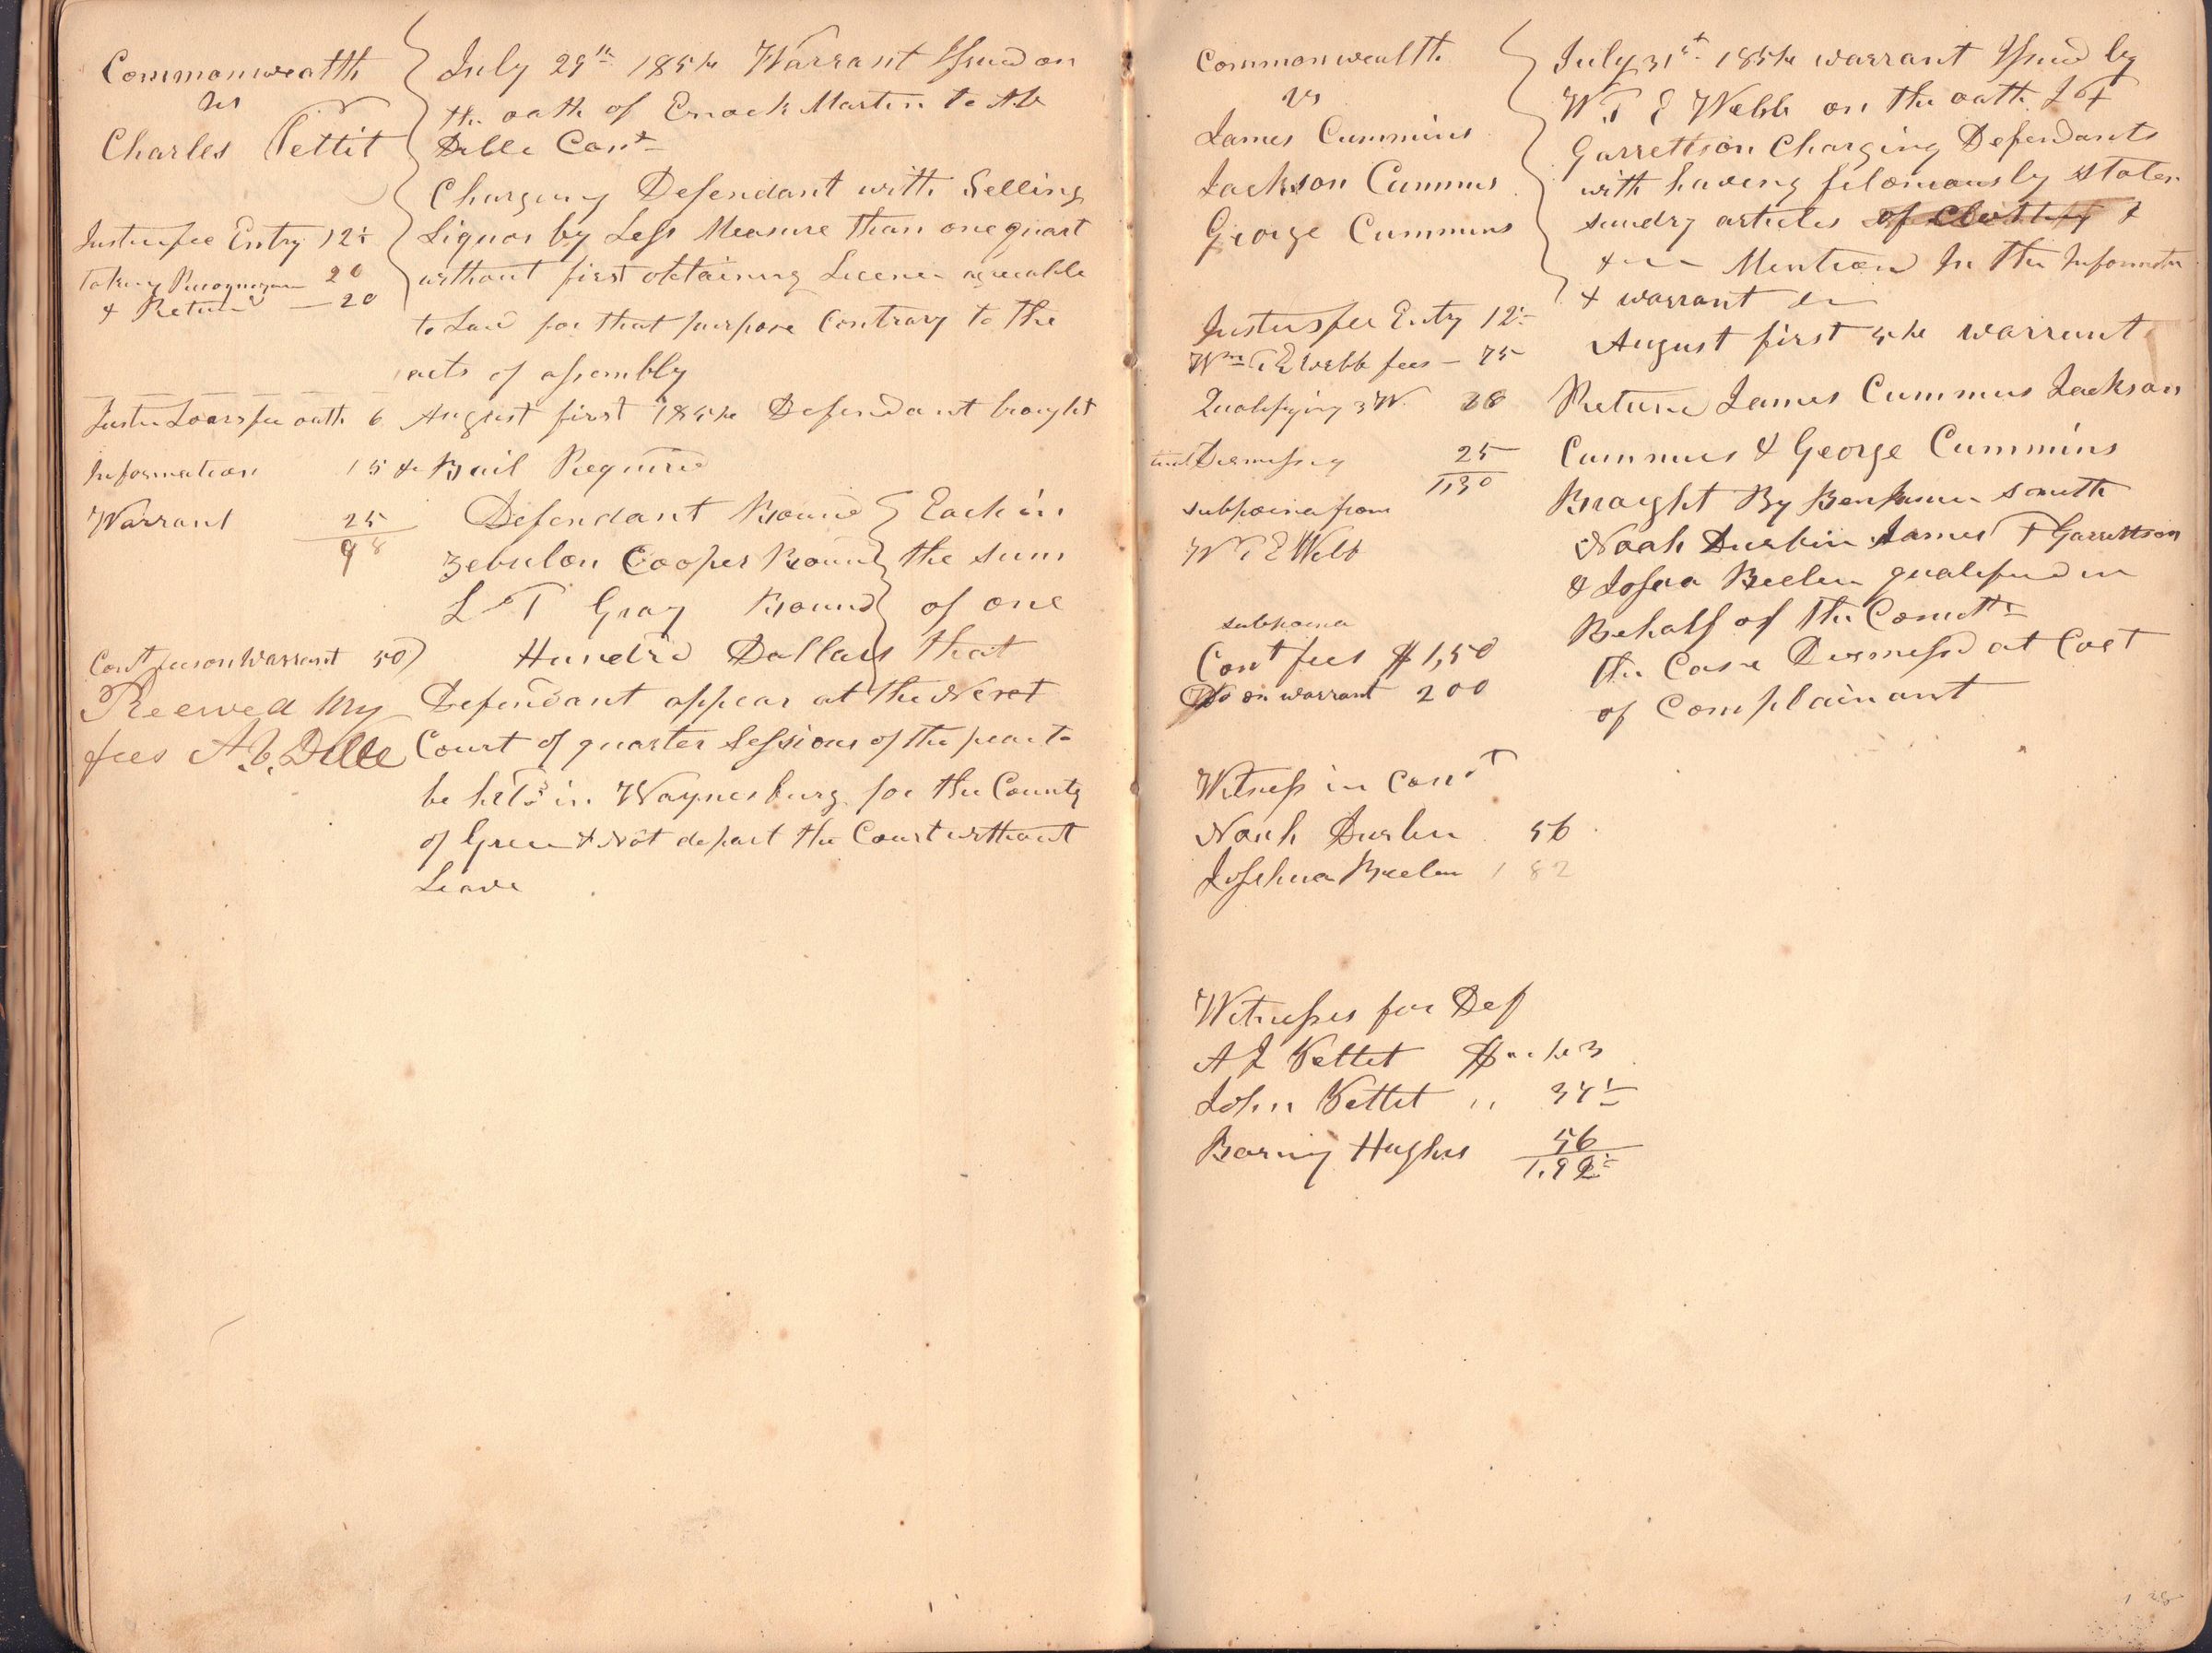 Commonwealth
vs
Charles Pettit
Justice fee Entry 12½
taking Recognizance 20
& Return — 20
Justice Loars fee oath 6
Information 15
Warrant 25
98
Const fees on Warrant 50
Receved My
fees A.b. Dille
July 29th 1854 Warrant Issued on
the oath of Enock Martin to Ab
Dille Const
Charging Defendant with Selling
Liquor by Less Measure Than one quart
without first obtaining Licence agreeable
to Law for that purpose Contrary to the
acts of assembly
August first 1854 Defendant brought
& Bail Required
Defendant Bound Each in
Zebulon Cooper Bound the sum
L T Gray Bound of one
Hundred Dollars that
Defendant appear at the Next
Court of quarter Sessions of the peace to
be held in Waynesburg for the County
of Green & Not depart the Court without
Leave
Commonwealth
vs
James Cummins
Jackson Cummins
George Cummins
Justus fee Entry 12½
Wm T E Webb fees — 75
Qualifying 3 W 18
Dismissing 25
1,30
subpoina from
W T E Webb
subpoena
Const fees $1,50
Do on warrant 200
Witness in Const
Noah Durbin 56
Joshua Beelen 82
Witnesses for Def
A J Pettet $
John Pettet " 37½
Barny Hughes 56
1.92
July 31st 1854 warrant Issued by
W. T E Webb on the oath J T
Garrettson Charging Defendants
with having feloniously stolen
sundry articles of clothing &
Mention In the Information
& warrant
August first 54 warrant
Return James Cummins Jackson
Cummins & George Cummins
Braught By Benjamin Smith
Noah Durbin James T Garrettson
& Joshua Beelen qualified in
Behalf of the Comth
the Case Dismissd at Cost
of Complainant